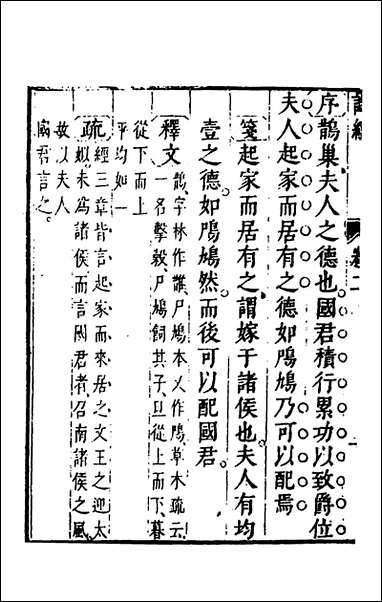 詩經
卷二
序鵲巢夫人之德也國君積行累功以致爵位
夫人起家而居有之德如鳲鳩乃可以配焉
箋起家而居有之謂嫁于諸侯也夫人有均
壹之德如鳲鳩然而後可以配國君
釋文鵲字林作䧿尸鳩本又作鳲草木疏云
一名擊穀尸鳩飼其子旦從上而下暮
從下而上
平均如一
疏經三章皆言起家而來居之文王之迎太
姒未為諸侯而言國君者召南諸侯之風
故以夫人
國君言之